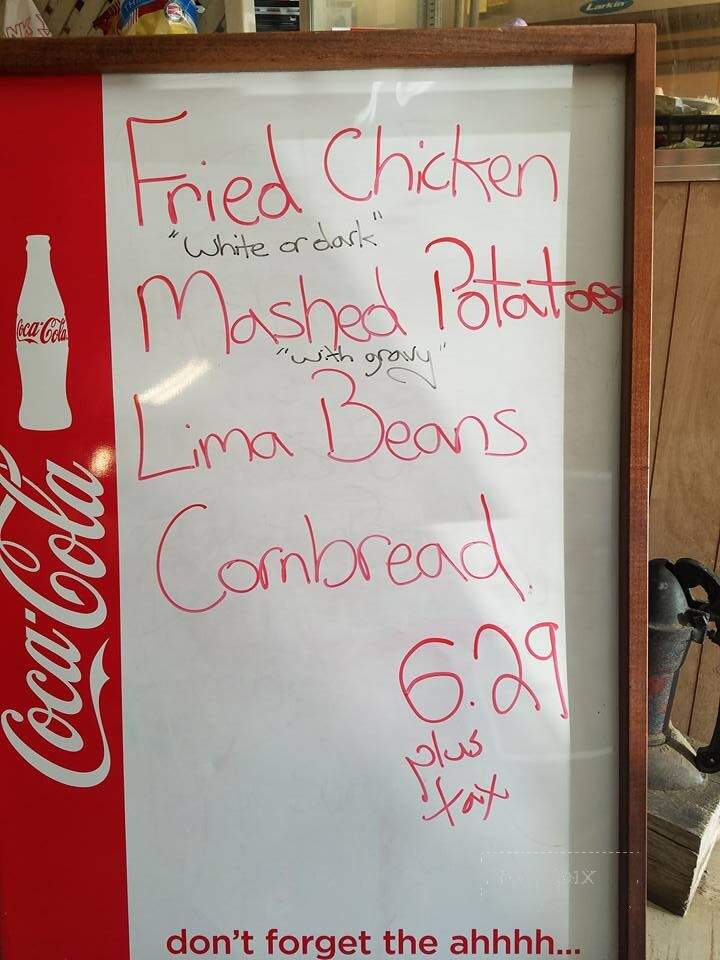 Larkin
Fried Chicken
"White or dark"
Mashed Potatoes
"with gravy"
Lima Beans
Coca-Cola
Cornbread.
Coca-Cola
6.29
plus
tax
don't forget the ahhhh...